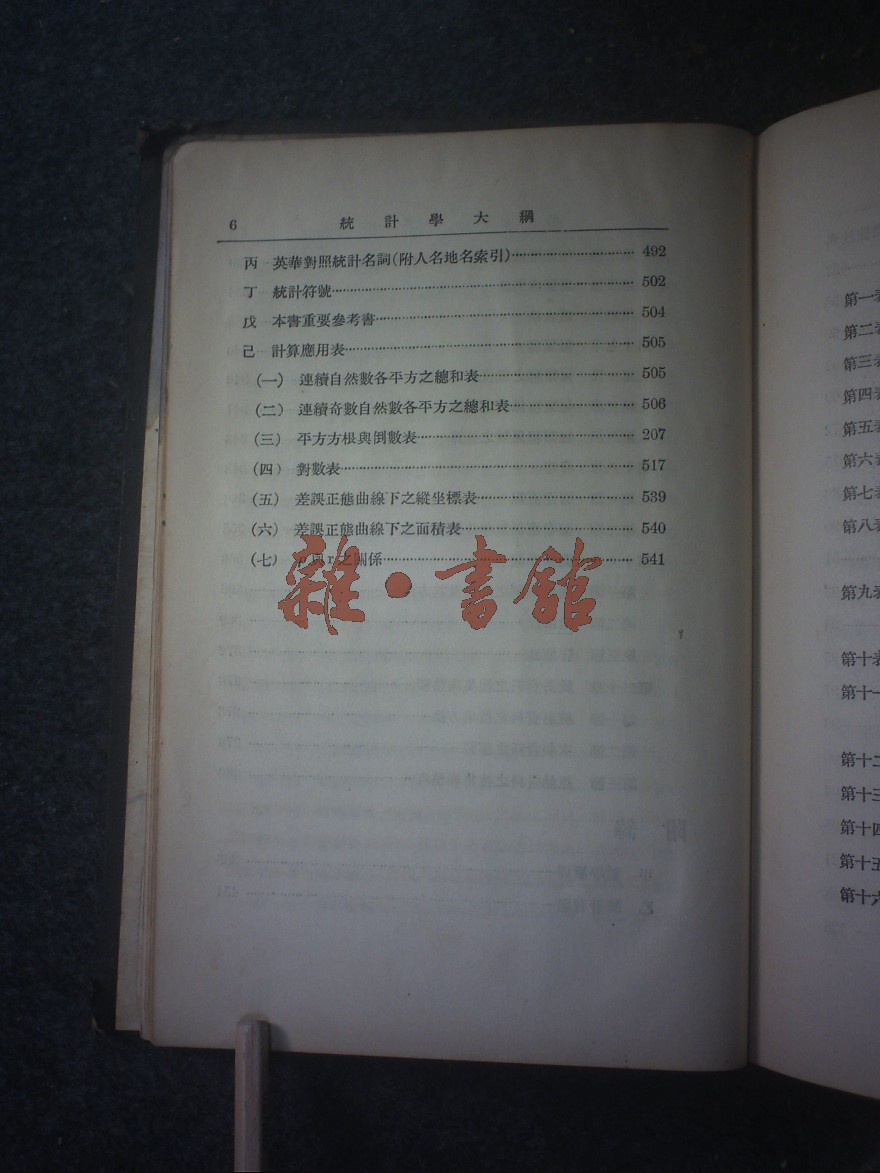 6 統計學大綱
丙 英華對照統計名詞(附人名地名索引)…………492
丁 統計符號…………502
戊 本書重要參考書…………504
己 計算應用表…………505
(一) 連續自然數各平方之總和表…………505
(二) 連續奇數自然數各平方之總和表…………506
(三) 平方方根與倒數表…………207
(四) 對數表…………517
(五) 差誤正態曲線下之縱坐標表…………539
(六) 差誤正態曲線下之面積表…………540
(七) ρ與r之關係…………541
雜·書館
第一表
第二表
第三表
第四表
第五表
第六表
第七表
第八表
第九表
第十表
第十一
第十二
第十三
第十四
第十五
第十六